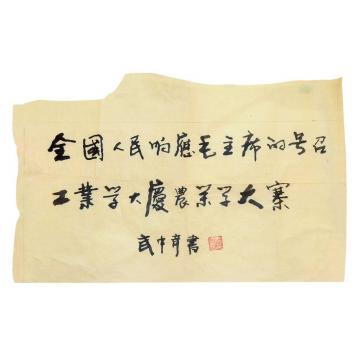 全國人民响應毛主席的号召
工業学大慶農業学大寨
武中奇書